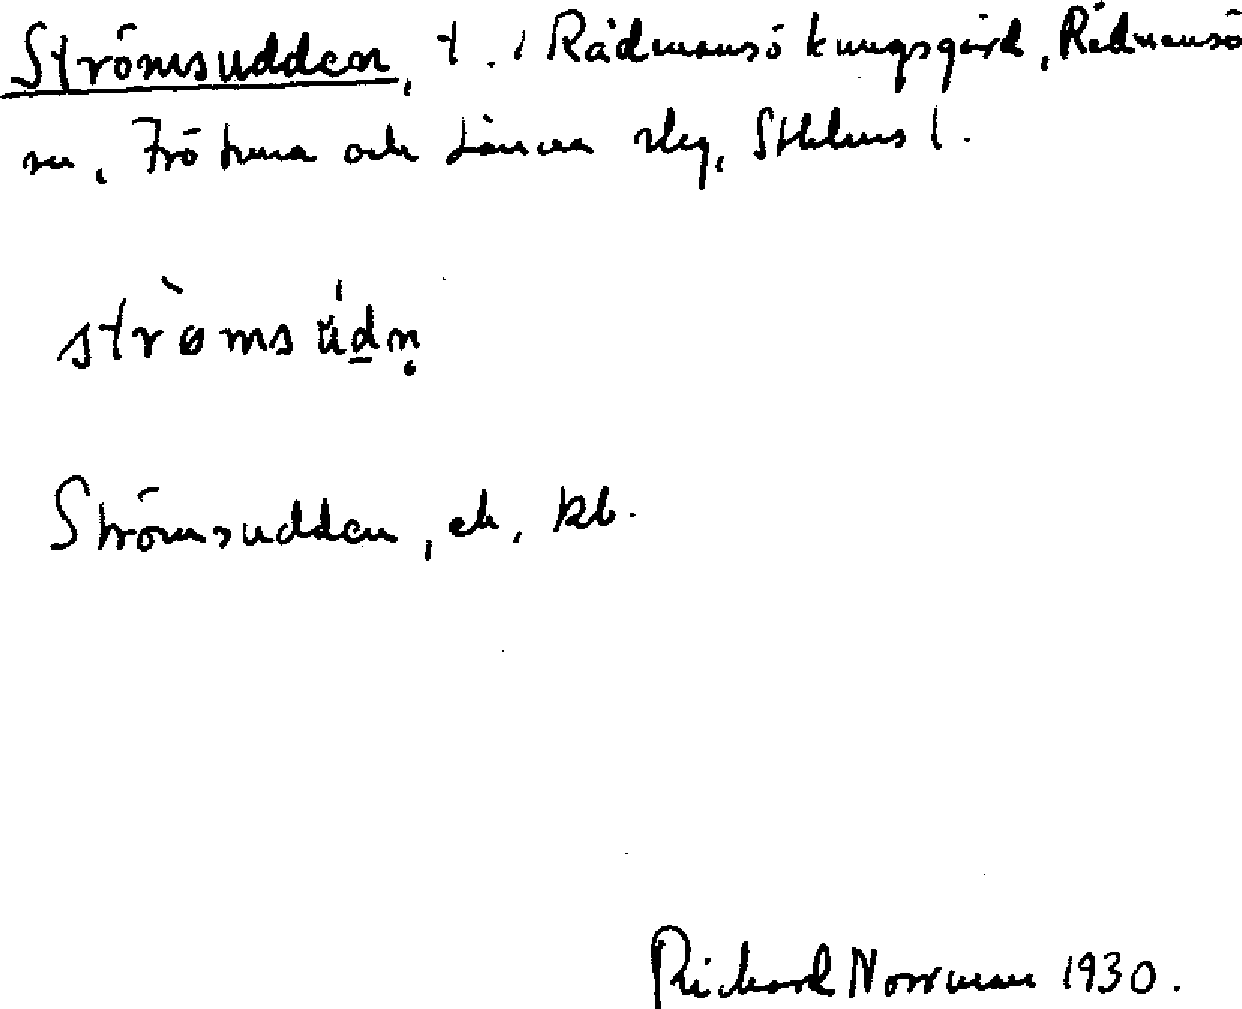 Strömsudden, t. i Rådmansö kungsgård, Rådmansö
sn, Frötuna och Länna slg, Sthlms l.
strò̀msúdn̥
Strömsudden, ek, kb.
Richard Norrman 1930.